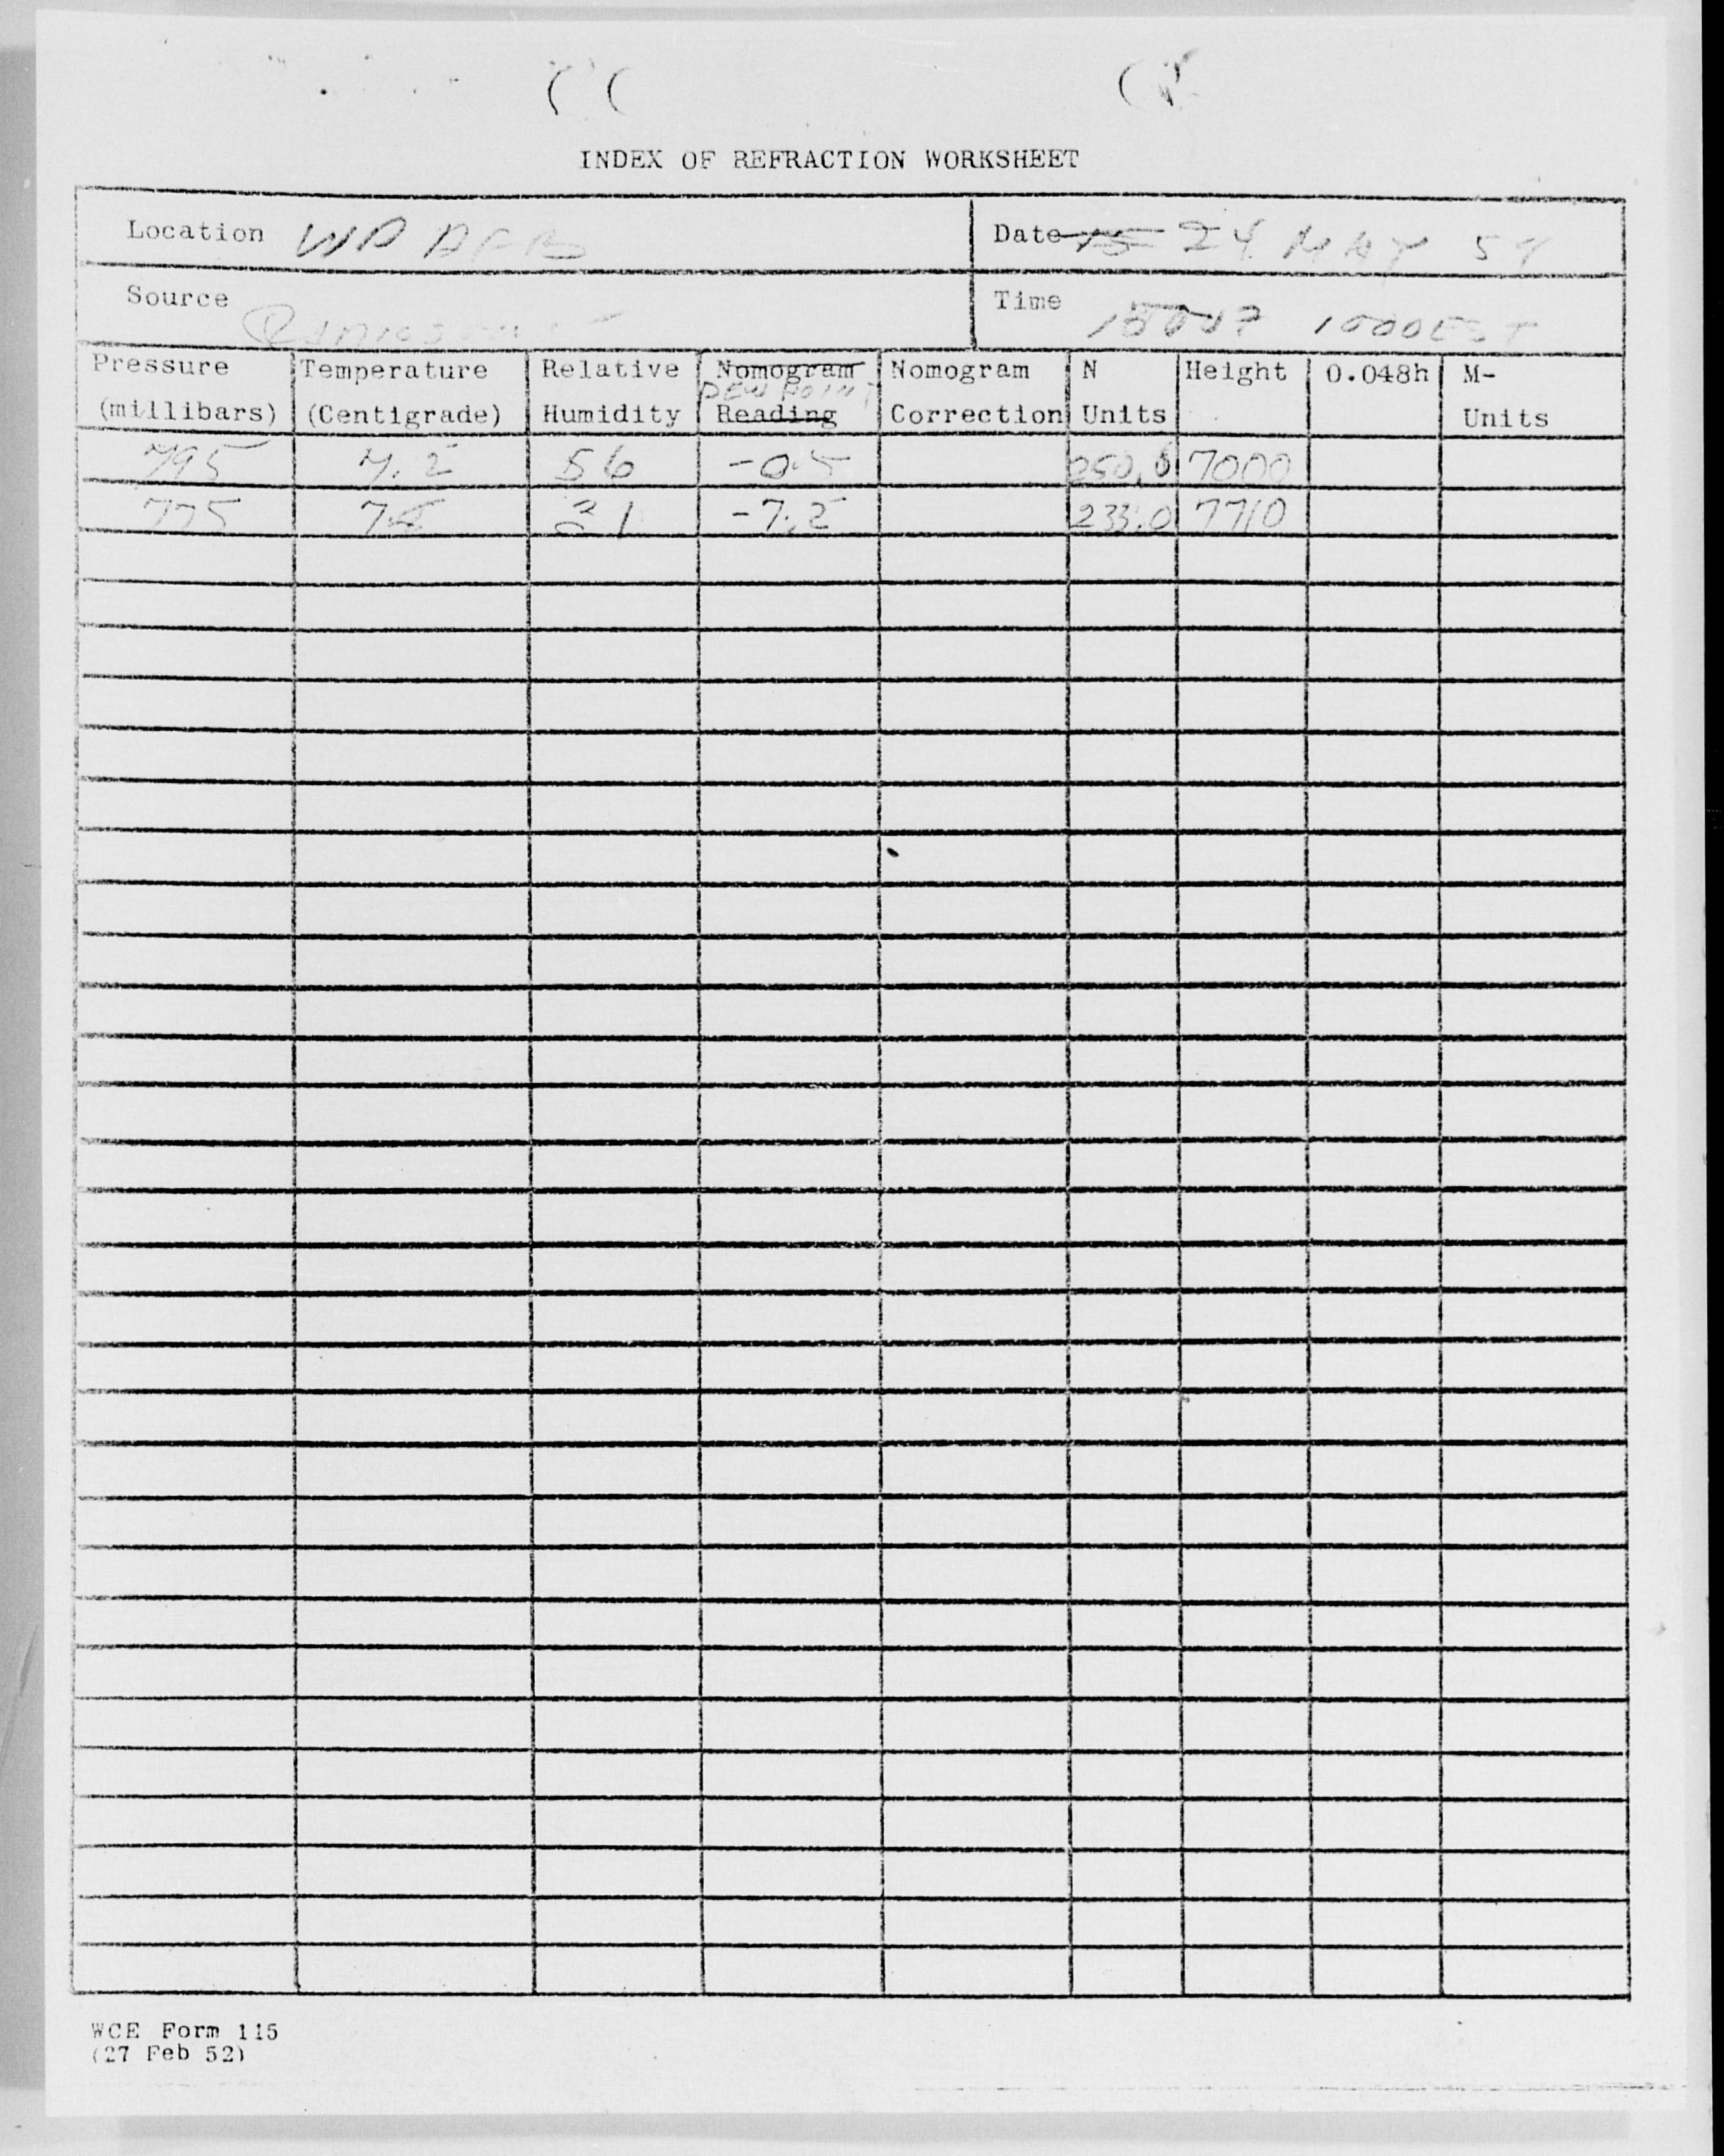 INDEX OF REFRACTION WORKSHEET
Location WP AFB Date 24 MAY
Source Time 1000 EST
Pressure (millibars) Temperature (Centigrade) Relative Humidity Nomogram Reading DEW POINT Nomogram Correction N Units Height 0.048h M-Units
795 7.2 56 -0.5 7000
775 31 -7.2 233.0 7710
WCE Form 115
(27 Feb 52)